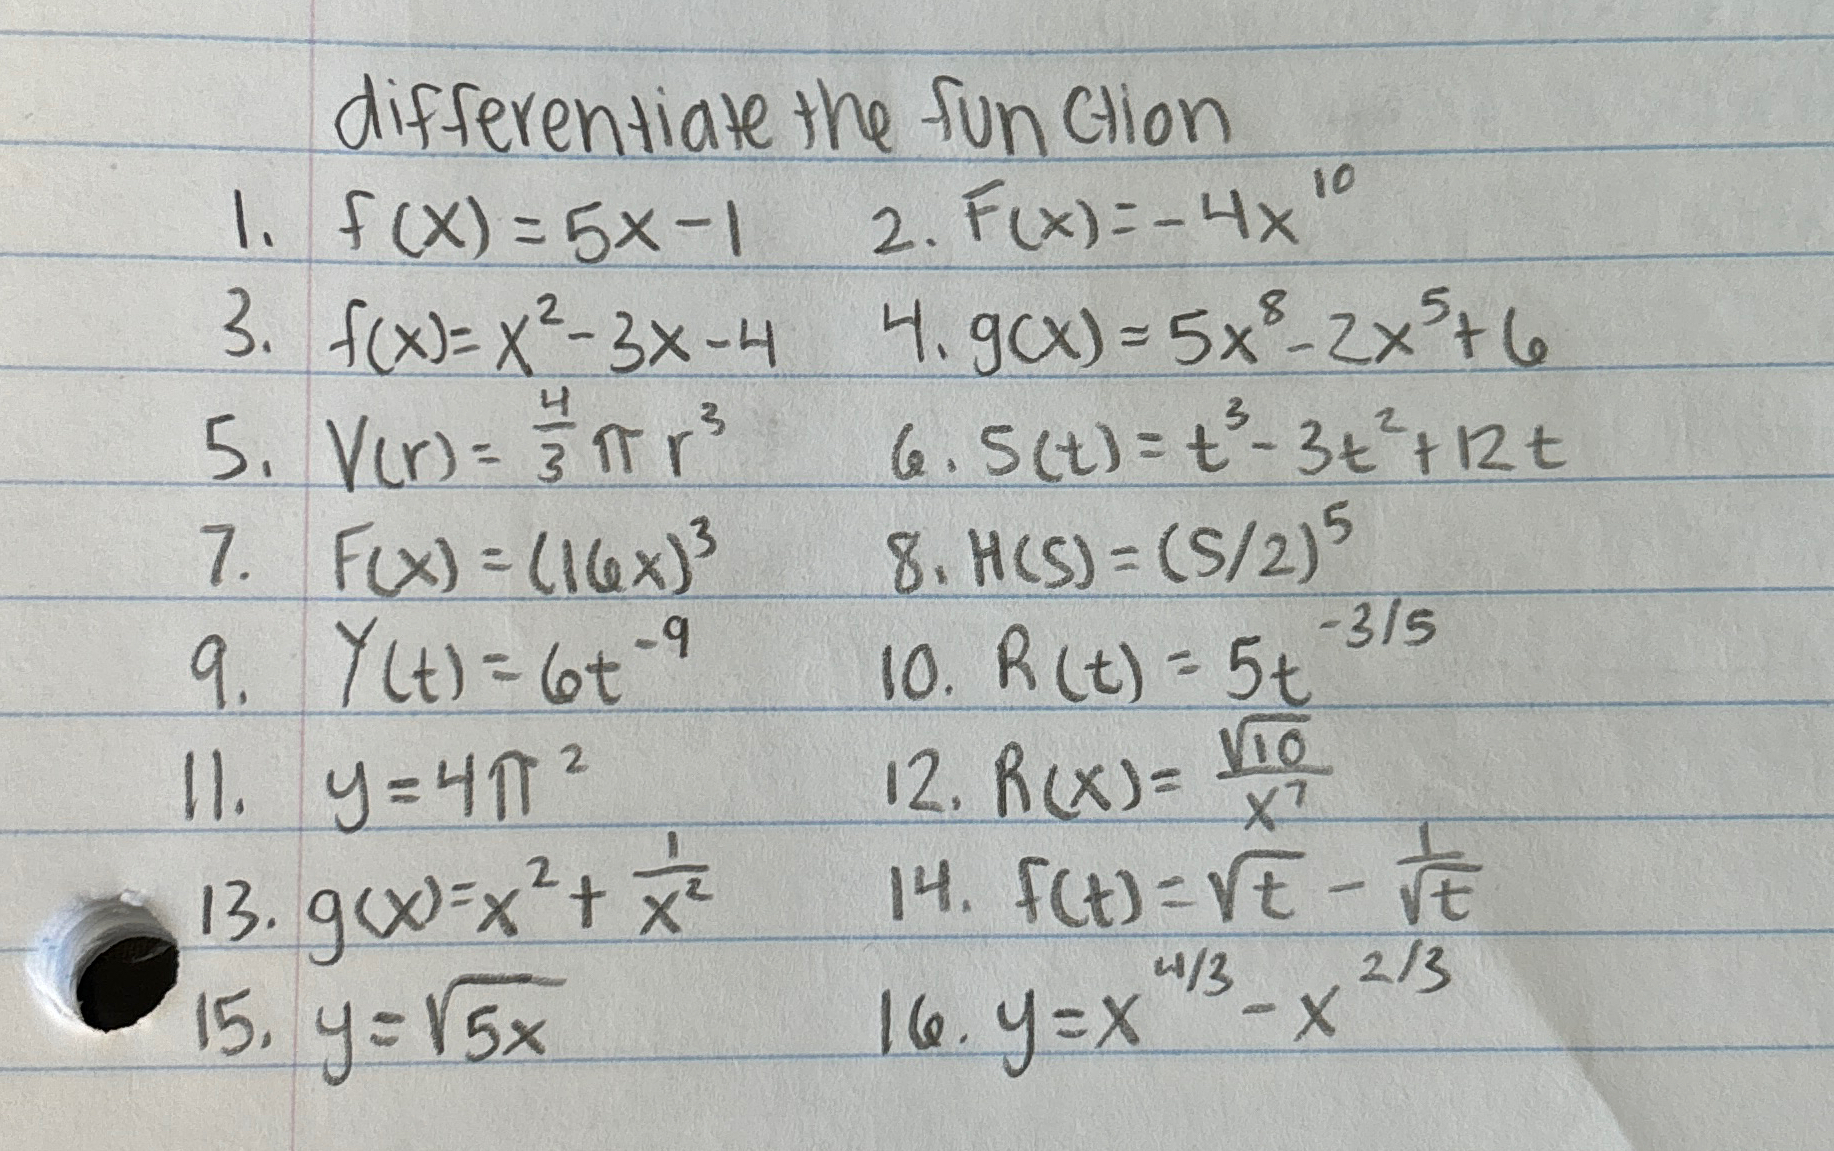 differentiate the function
1. f(x) = 5x - 1 2. F(x) = -4x^10
3. f(x) = x^2 - 3x - 4 4. g(x) = 5x^8 - 2x^5 + 6
5. V(r) = 4/3 π r^3 6. S(t) = t^3 - 3t^2 + 12t
7. F(x) = (16x)^3 8. H(S) = (S/2)^5
9. Y(t) = 6t^-9 10. R(t) = 5t^-3/5
11. y = 4π^2 12. R(x) = √10/x^7
13. g(x) = x^2 + 1/x^2 14. f(t) = √t - 1/√t
15. y = √5x 16. y = x^4/3 - x^2/3